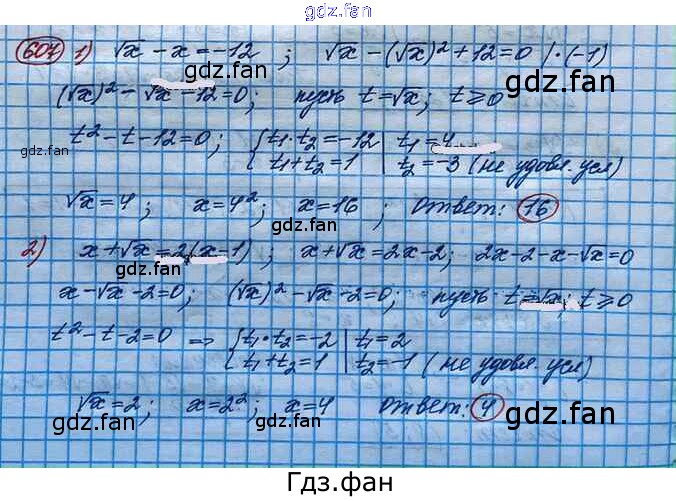 gdz.fan
607 1) √x - x = -12 ; √x - (√x)² + 12 = 0 | ·(-1)
gdz.fan gdz.fan
(√x)² - √x - 12 = 0; пусть t = √x; t ≥ 0
gdz.fan
t² - t - 12 = 0; { t₁·t₂ = -12 | t₁ = 4
gdz.fan
t₁ + t₂ = 1 | t₂ = -3 (не удовл. усл)
√x = 4; x = 4²; x = 16; Ответ: 16
gdz.fan gdz.fan
2) x + √x = 2(x - 1); x + √x = 2x - 2; 2x - 2 - x - √x = 0
gdz.fan
x - √x - 2 = 0; (√x)² - √x - 2 = 0; пусть t = √x; t ≥ 0
gdz.fan
t² - t - 2 = 0 => { t₁·t₂ = -2 | t₁ = 2
t₁ + t₂ = 1 | t₂ = -1 (не удовл. усл)
gdz.fan
√x = 2; x = 2²; x = 4 Ответ: 4
gdz.fan gdz.fan gdz.fan
Гдз.фан